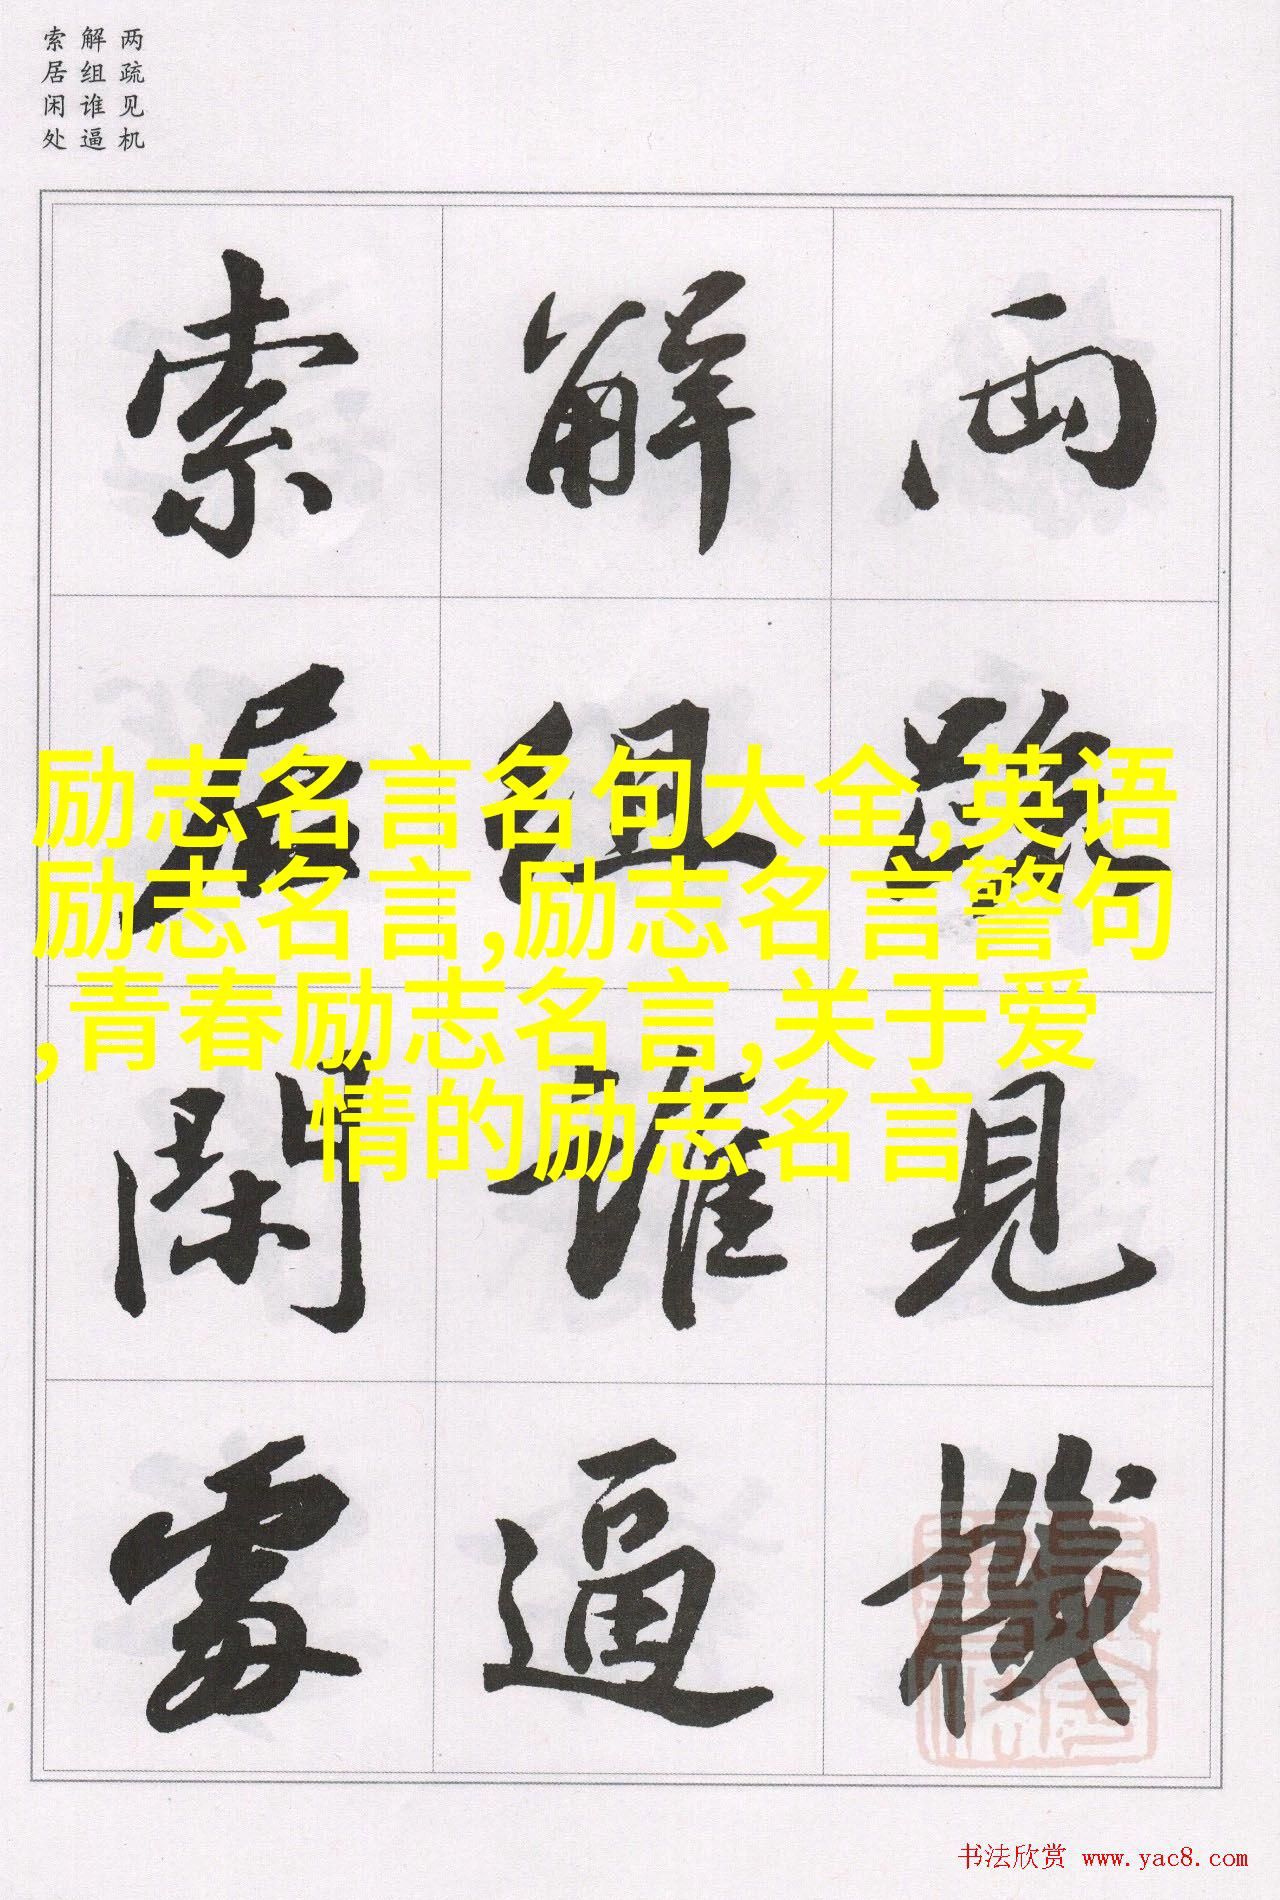 两疏见机
解组谁逼
索居闲处
兩疏見機
解組誰逼
索居閑處
励志名言名句大全,英语
励志名言,励志名言警句
,青春励志名言,关于爱
情的励志名言
书法欣赏 www.yac8.com